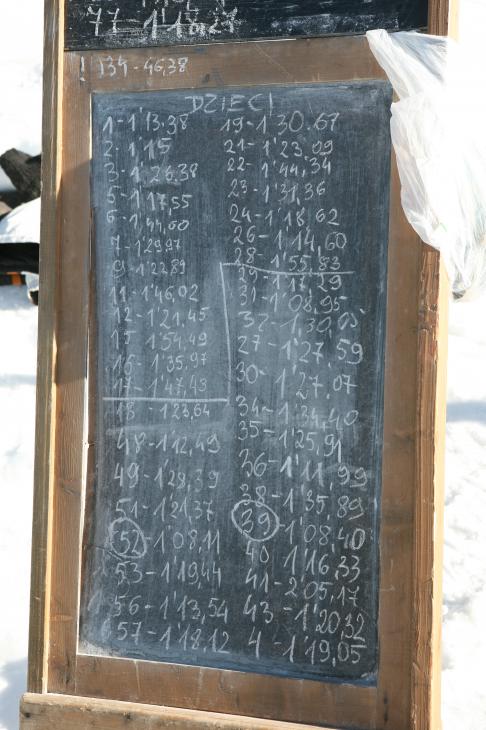 77 - 1'18,27
! 134 - 46,38
DZIECI
1 - 1'13.38
2 - 1'15
3 - 1'26,38
5 - 1'17,55
6 - 1'44,60
7 - 1'29,97
9 - 1'22,89
11 - 1'46,02
12 - 1'21,45
15 - 1'54,49
16 - 1'35,97
17 - 1'47,43
18 - 1'23,64
48 - 1'12,49
49 - 1'28,39
51 - 1'21,37
52 - 1'08,11
53 - 1'19,44
56 - 1'13,54
57 - 1'18,12
19 - 1'30.67
21 - 1'23,09
22 - 1'44,34
23 - 1'31,36
24 - 1'18,62
26 - 1'14,60
28 - 1'55,83
29 - 1'17,29
31 - 1'08,95
32 - 1'30,05
27 - 1'27,59
30 - 1'27,07
34 - 1'34,40
35 - 1'25,91
36 - 1'11,99
38 - 1'35,89
39 - 1'08,40
40 1'16,33
41 - 2'05,17
43 - 1'20,32
4 - 1'19,05